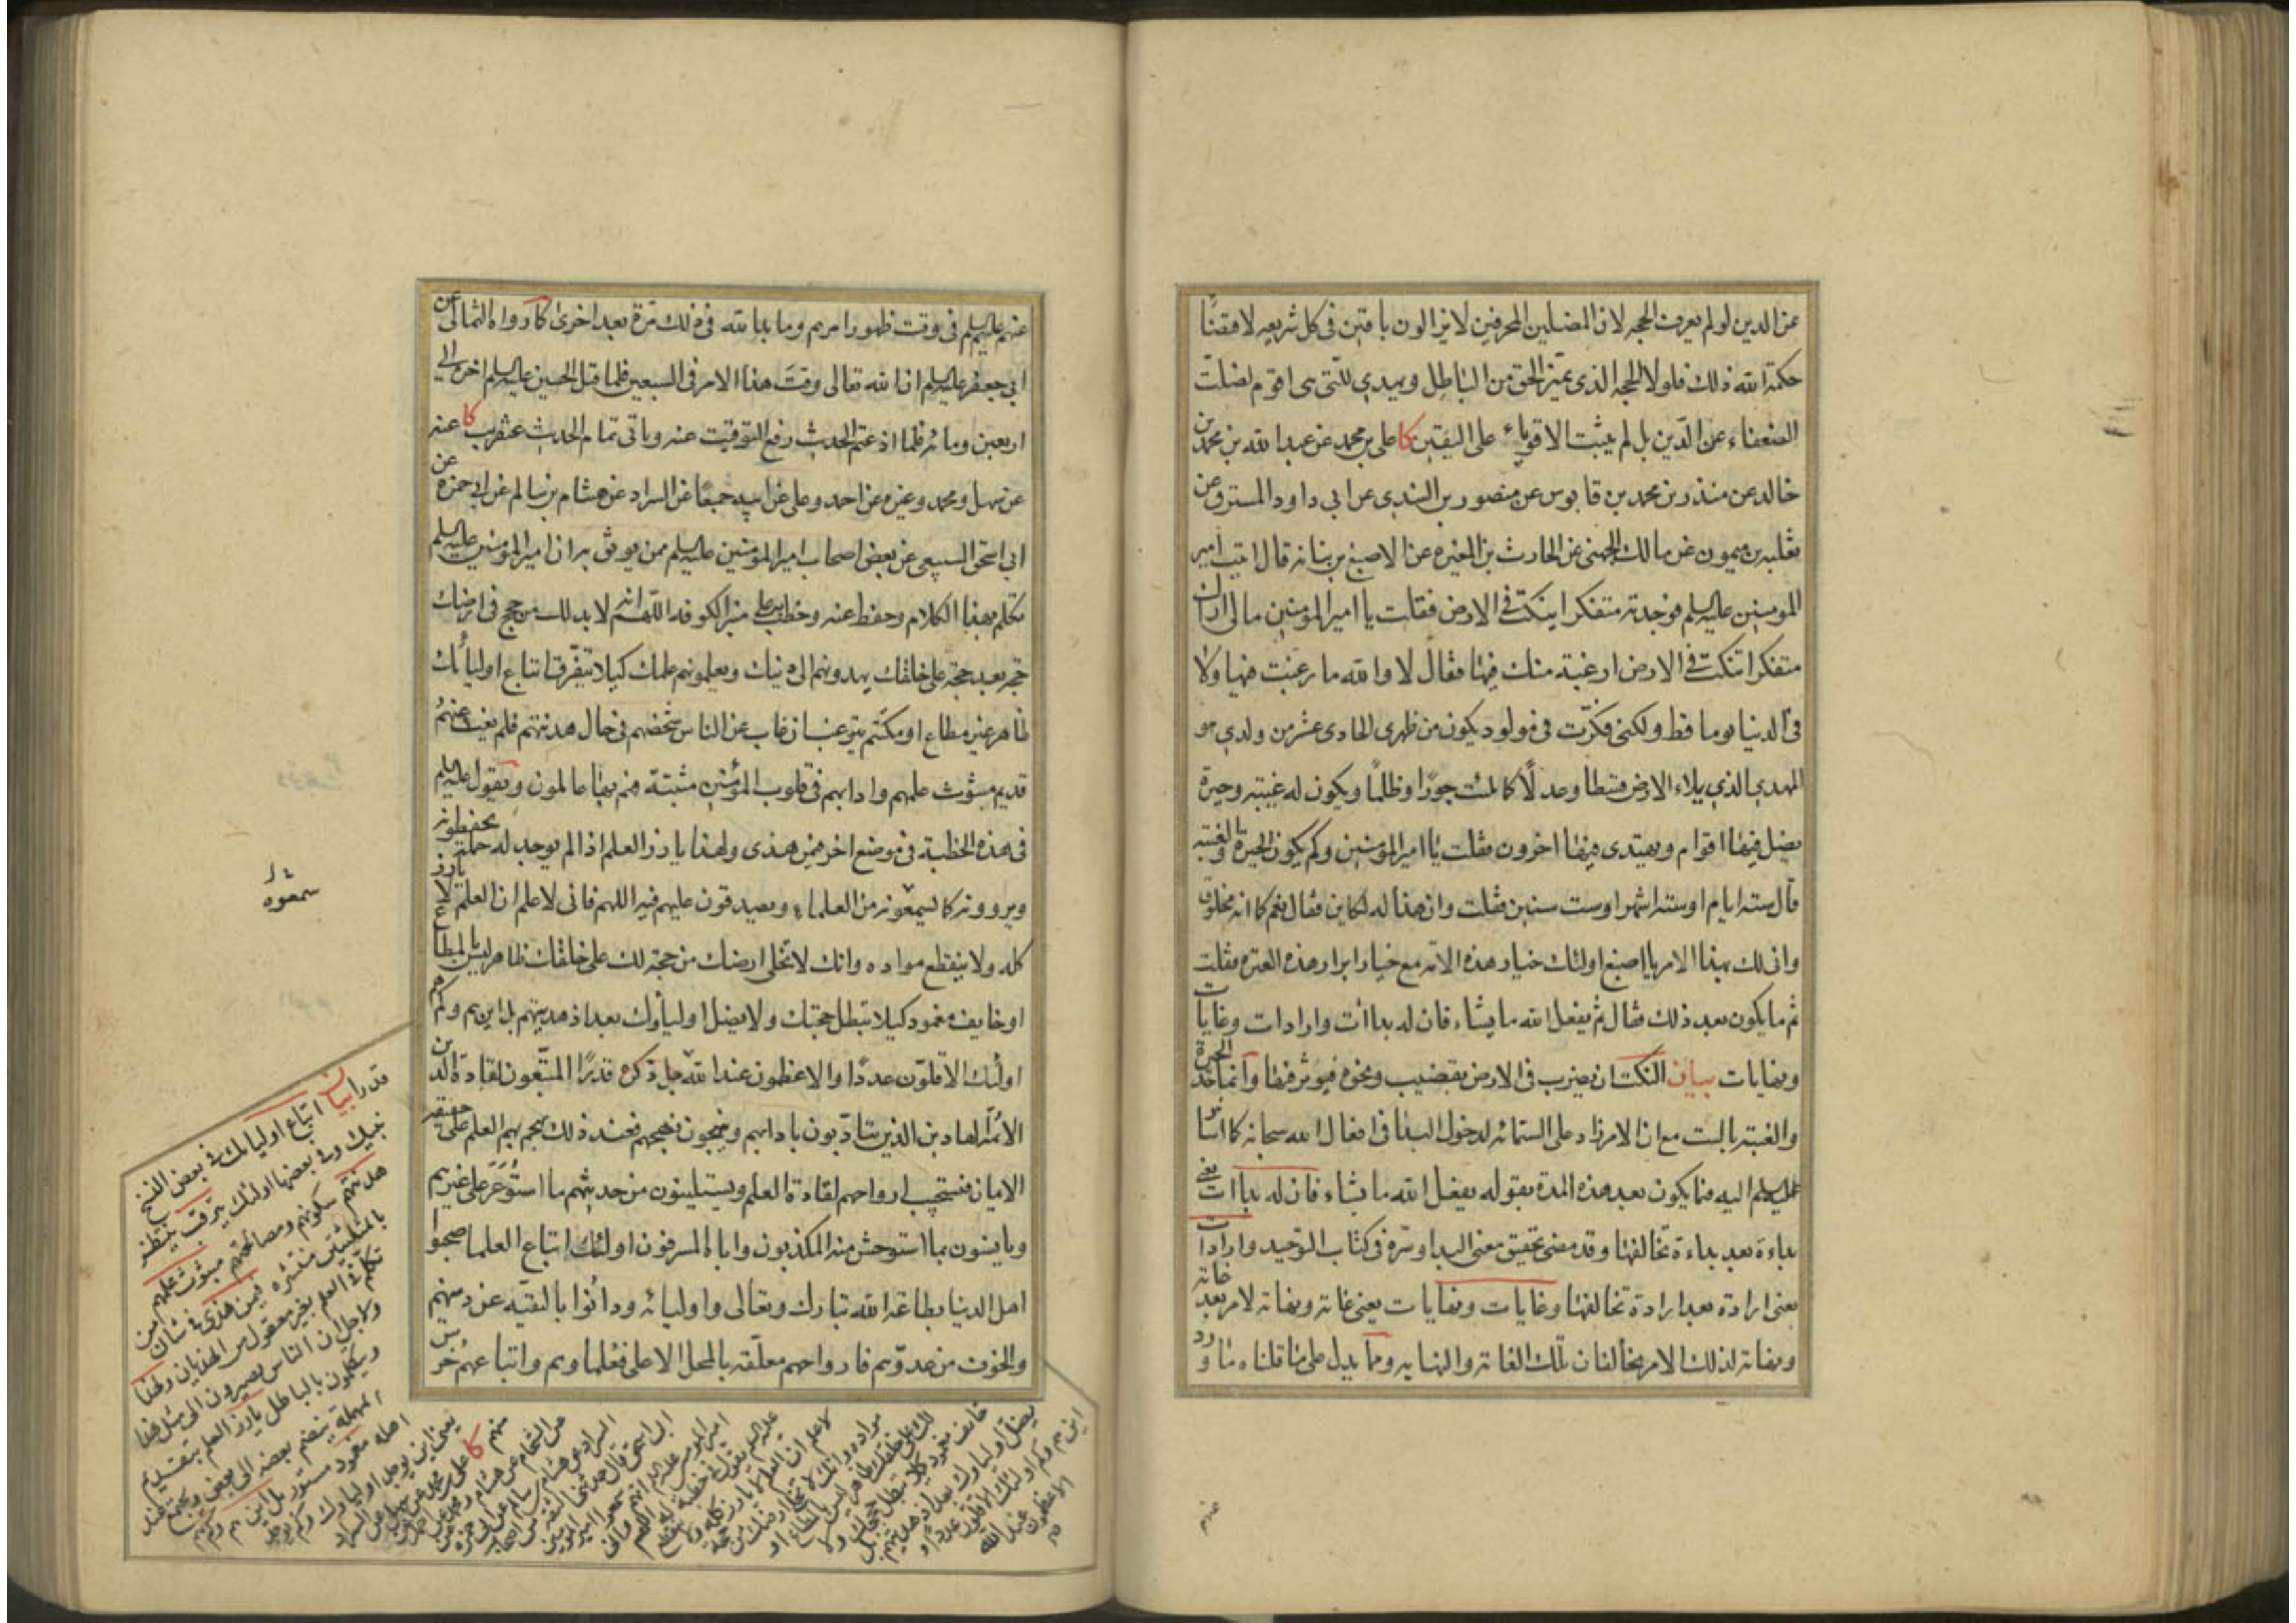 عن الدين لو لم يعرف الحجه لان المضلين المحرفين لا يزالون باقين فى كل شريعه لاقتضا
حكمة الله ذلك فلولا الحجه الذى يميز الحق من الباطل ويهدي للتى هى اقوم لضلت
الضعفاء عن الدين بل لم يثبت الاقوياء على اليقين كا على بن محمد عن عبد الله بن محمد بن
خالد عن منذر بن محمد بن قابوس عن منصور بن السندى عن ابي داود المسترق عن
ثعلبه بن ميمون عن مالك الجهنى عن الحارث بن المغيره عن الاصبغ بن نباته قال اتيت امير
المومنين عليه السلم فوجدته متفكرا ينكت فى الارض فقلت يا امير المومنين مالى اراك
متفكرا تنكت فى الارض ارغبة منك فيها فقال لا والله ما رغبت فيها ولا
فى الدنيا يوما قط ولكنى فكرت فى مولود يكون من ظهرى الحادى عشر من ولدي هو
المهدى الذي يملاء الارض قسطا وعدلا كما ملئت جورا وظلما ويكون له غيبة وحيرة
يضل فيها اقوام ويهتدى فيها اخرون فقلت يا امير المومنين وكم يكون الحيرة والغيبة
قال ستة ايام او ستة اشهر او ست سنين فقلت وان هذا له لكاين فقال نعم كما انه مخلوق
وانى لك بهذا الامر يا اصبغ اولئك خيار هذه الامه مع خيار ابرار هذه العتره فقلت
ثم ما يكون بعد ذلك فقال ثم يفعل الله ما يشاء فان له بداآت وارادات وغايات
ونهايات بيان النكت ان يضرب فى الارض بقضيب ونحوه فيوثر فيها وانما حد الحيرة
والغيبة بالست مع ان الامر زاد على الستمائه لدخول البدا فى افعال الله سبحانه كما اشار
عليه السلم اليه فيما يكون بعد هذه المدة بقوله يفعل الله ما يشاء فان له بداات يعنى
بداءة بعد بداءة تخالفها وقد مضى تحقيق معنى البدا وسره فى كتاب التوحيد وارادات
يعنى ارادة بعد ارادة تخالفها وغايات ونهايات يعنى غاية ونهاية لامر بعد غاية
ونهاية لذلك الامر يخالفان تلك الغاية والنهايه ومما يدل على ما قلناه ما ورد
عنهم
عنهم عليهم السلم فى وقت ظهور امرهم وما بدا لله فى ذلك مرة بعد اخرى كما رواه الثمالى عن
ابي جعفر عليه السلم ان الله تعالى وقت هذا الامر فى السبعين فلما قتل الحسين عليه السلم اخره الى
اربعين ومائه فلما اذعتم الحديث رفع التوقيت عنه وياتى تمام الحديث عنقريب كا عنه
عن سهل ومحمد وغيره عن احمد وعلى عن ابيه جميعا عن السراد عن هشام بن سالم عن ابى حمزه عن
ابى اسحق السبيعى عن بعض اصحاب امير المومنين عليه السلم ممن يوثق به ان امير المومنين عليه السلم
تكلم بهذا الكلام وحفظ عنه وخطب به على منبر الكوفه اللهم انه لا بد لك من حجج فى ارضك
حجة بعد حجة على خلقك يهدونهم الى دينك ويعلمونهم علمك كيلا يتفرق اتباع اوليائك
ظاهر غير مطاع او مكتتم يترقب ان غاب عن الناس شخصهم فى حال هدنتهم فلم يغب عنهم
قديم مبثوث علمهم وادابهم فى قلوب المؤمنين مثبتة فهم بها عاملون ويقول عليه السلم
فى هذه الخطبة فى موضع اخر فيمن هذى ولهذا يارز العلم اذا لم يوجد له حملة يحفظونه
ويروونه كما يسمعونه من العلماء ويصدقون عليهم فيه اللهم فانى لاعلم ان العلم لا يارز
كله ولا ينقطع مواده وانك لا تخلى ارضك من حجة لك على خلقك ظاهر ليس بالمطاع
او خايف مغمود كيلا تبطل حجتك ولا يضل اولياؤك بعد اذ هديتهم بل اين هم وكم هم
اولئك الاقلون عددا والاعظمون عند الله جل ذكره قدرا المتبعون لقادة الدين
الائمة الهادين الذين يتادبون بادابهم وينهجون نهجهم فعند ذلك يهجم بهم العلم على حقيقة
الايمان فتستجيب ارواحهم لقادة العلم ويستلينون من حديثهم ما استوعر على غيرهم
ويانسون بما استوحش منه المكذبون واباه المسرفون اولئك اتباع العلما صحبوا
اهل الدنيا بطاعة الله تبارك وتعالى واوليائه ودانوا بالتقيه عن دينهم
والخوف من عدوهم فارواحهم معلقة بالمحل الاعلى فعلماوهم واتباعهم خرس
سمعوه
قدرا بيان اتباع اوليائك فى بعض النسخ
بنيك وفى بعضها اولئك يترقب ينتظر
هدنتهم سكونهم ومصالحتهم مبثوث علمهم من
بالمثلثتين منتشره فيمن هذى فى شان
تكلم فى العلم بغير معقول من الهذيان ولهذا
ولاجل ان الناس يصيرون الى مثل هذا
ويتكلمون بالباطل يارز العلم بتقديم
المهملة ينضم بعضه الى بعض ويجتمع عند
اهله مغمود مستور بل اين هم وكم هم
يعنى اين يوجد اولياؤك وكم يوجد
منهم كا على بن محمد عن سهل عن السراد